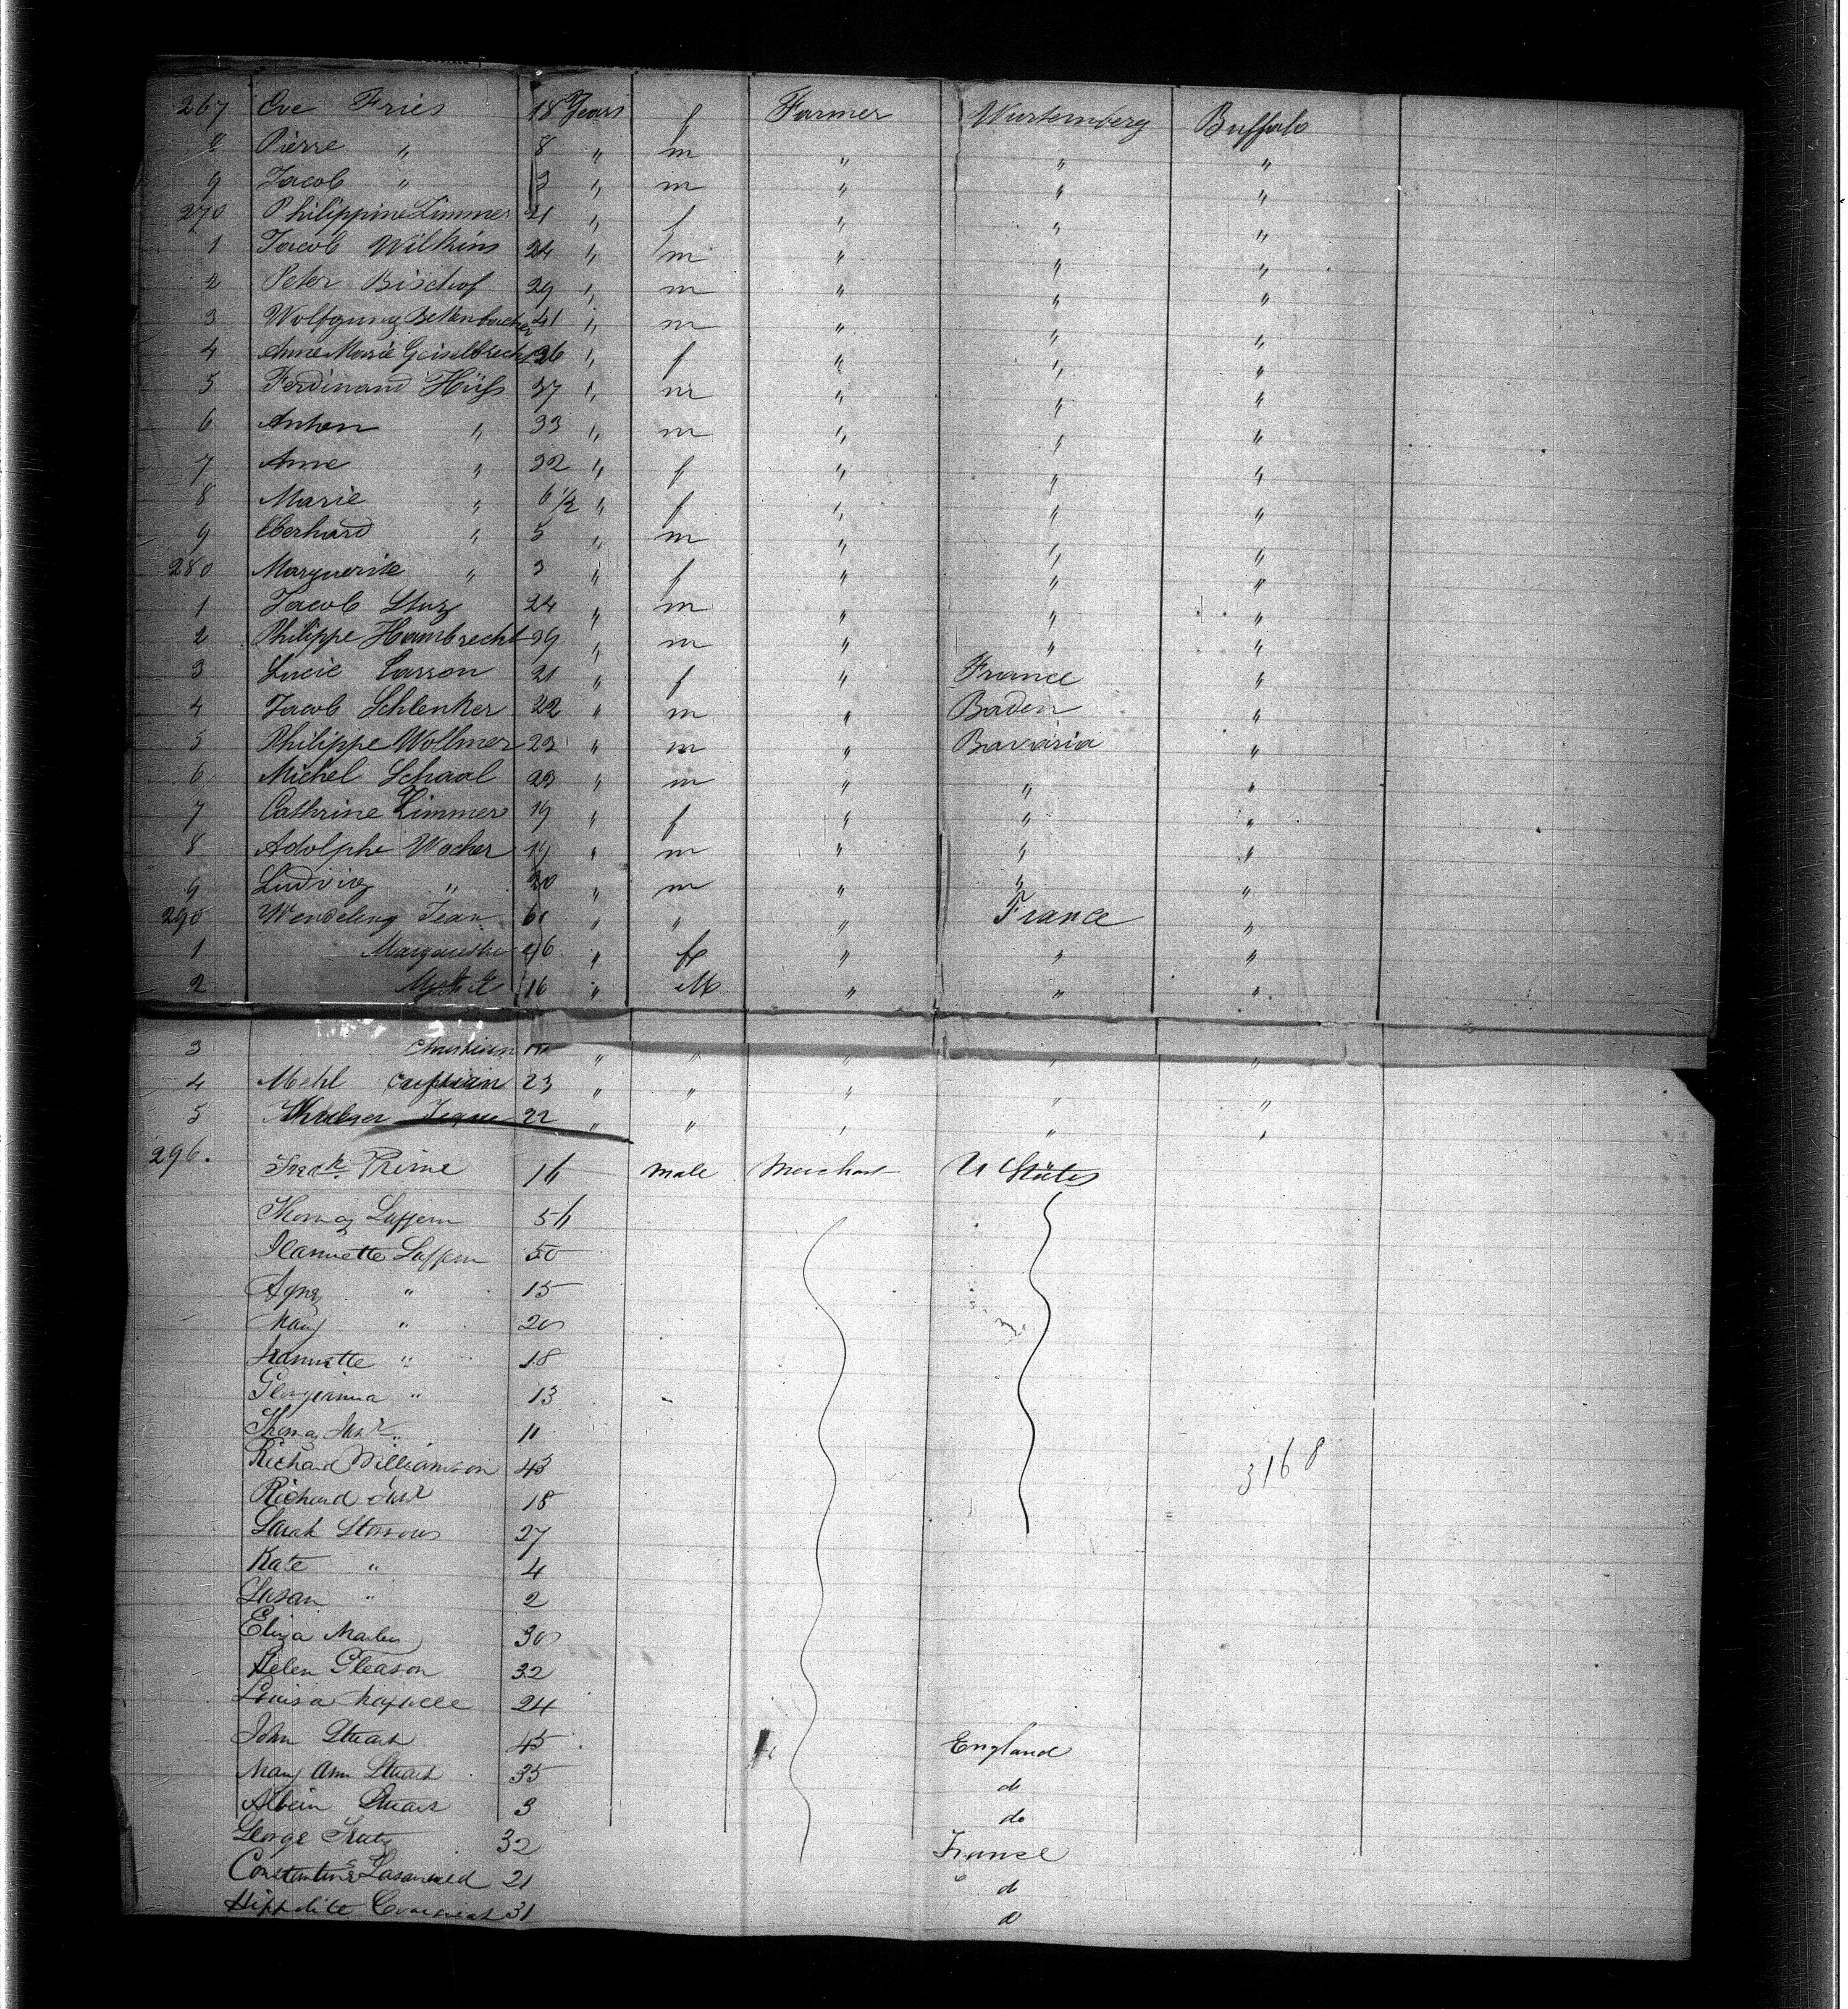 267 Eve Fries 18 Years f Farmer Wurtemberg Buffalo
8 Pierre " 8 " m " " "
9 Jacob " 3 " m " " "
270 Philippine Zimmer 21 " f " " "
1 Jacob Wilkins 24 " m " " "
2 Peter Bischof 29 " m " " "
3 Wolfgang Bettenbacher 41 " m " " "
4 Anne Marie Geiselbrecht 26 " f " " "
5 Ferdinand Hüfs 37 " m " " "
6 Anton " 33 " m " " "
7 Anne " 32 " f " " "
8 Marie " 6 1/2 " f " " "
9 Eberhard " 5 " m " " "
280 Marguerite " 3 " f " " "
1 Jacob Stuz 24 " m " " "
2 Philippe Hambrecht 39 " m " " "
3 Lucie Carson 21 " f " France "
4 Jacob Schlenker 22 " m " Baden "
5 Philippe Wollmer 23 " m " Bavaria "
6 Michel Schaal 23 " m " " "
7 Cathrine Zimmer 19 " f " " "
8 Adolphe Wacher 19 " m " " "
9 Ludwig " 20 " m " " "
290 Wendeling Jean 61 " " " France "
1 Margarethe 26 " fe " " "
2 16 " M " " "
3 Christian " " " " "
4 Mehl 23 " " " " "
5 22 " " " " "
296. Fredk. Prime 16 male Merchant U States
Thomas Laffern 56
Jeannette Laffern 50
Agnes " 15
Mary " 20
Jeannette " 18
Georgianna " 13
Thomas Junr " 11
Richard Williamson 43
3168
Richard Junr 18
Sarah Storrows 27
Kate " 4
Susan " 2
Eliza 30
Helen Gleason 32
Louisa 24
John Stuart 45 England
Mary Ann Stuart 35 do
Stuart 3 do
George 32 France
Constantine 21 do
Hippolite 31 do